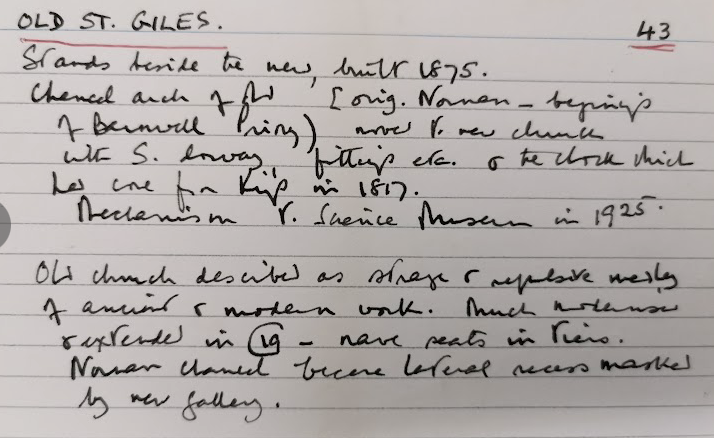 OLD ST. GILES.
43
Stands beside the new, built 1875.
Chancel arch of old [orig. Norman - beginnings
of Barnwell Priory) moved to new church
with S. doorway, fittings etc. & the clock which
had come from King's in 1817.
Mechanism to Science Museum in 1925.
Old church described as strange & repulsive medley
of ancient & modern work. Much modernised
& extended in 19 - nave seats in tiers.
Norman chancel became lateral recess masked
by new gallery.